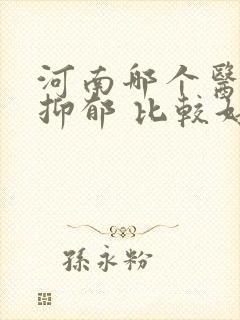 河南那个醫
抑郁 比較好
孫永粉